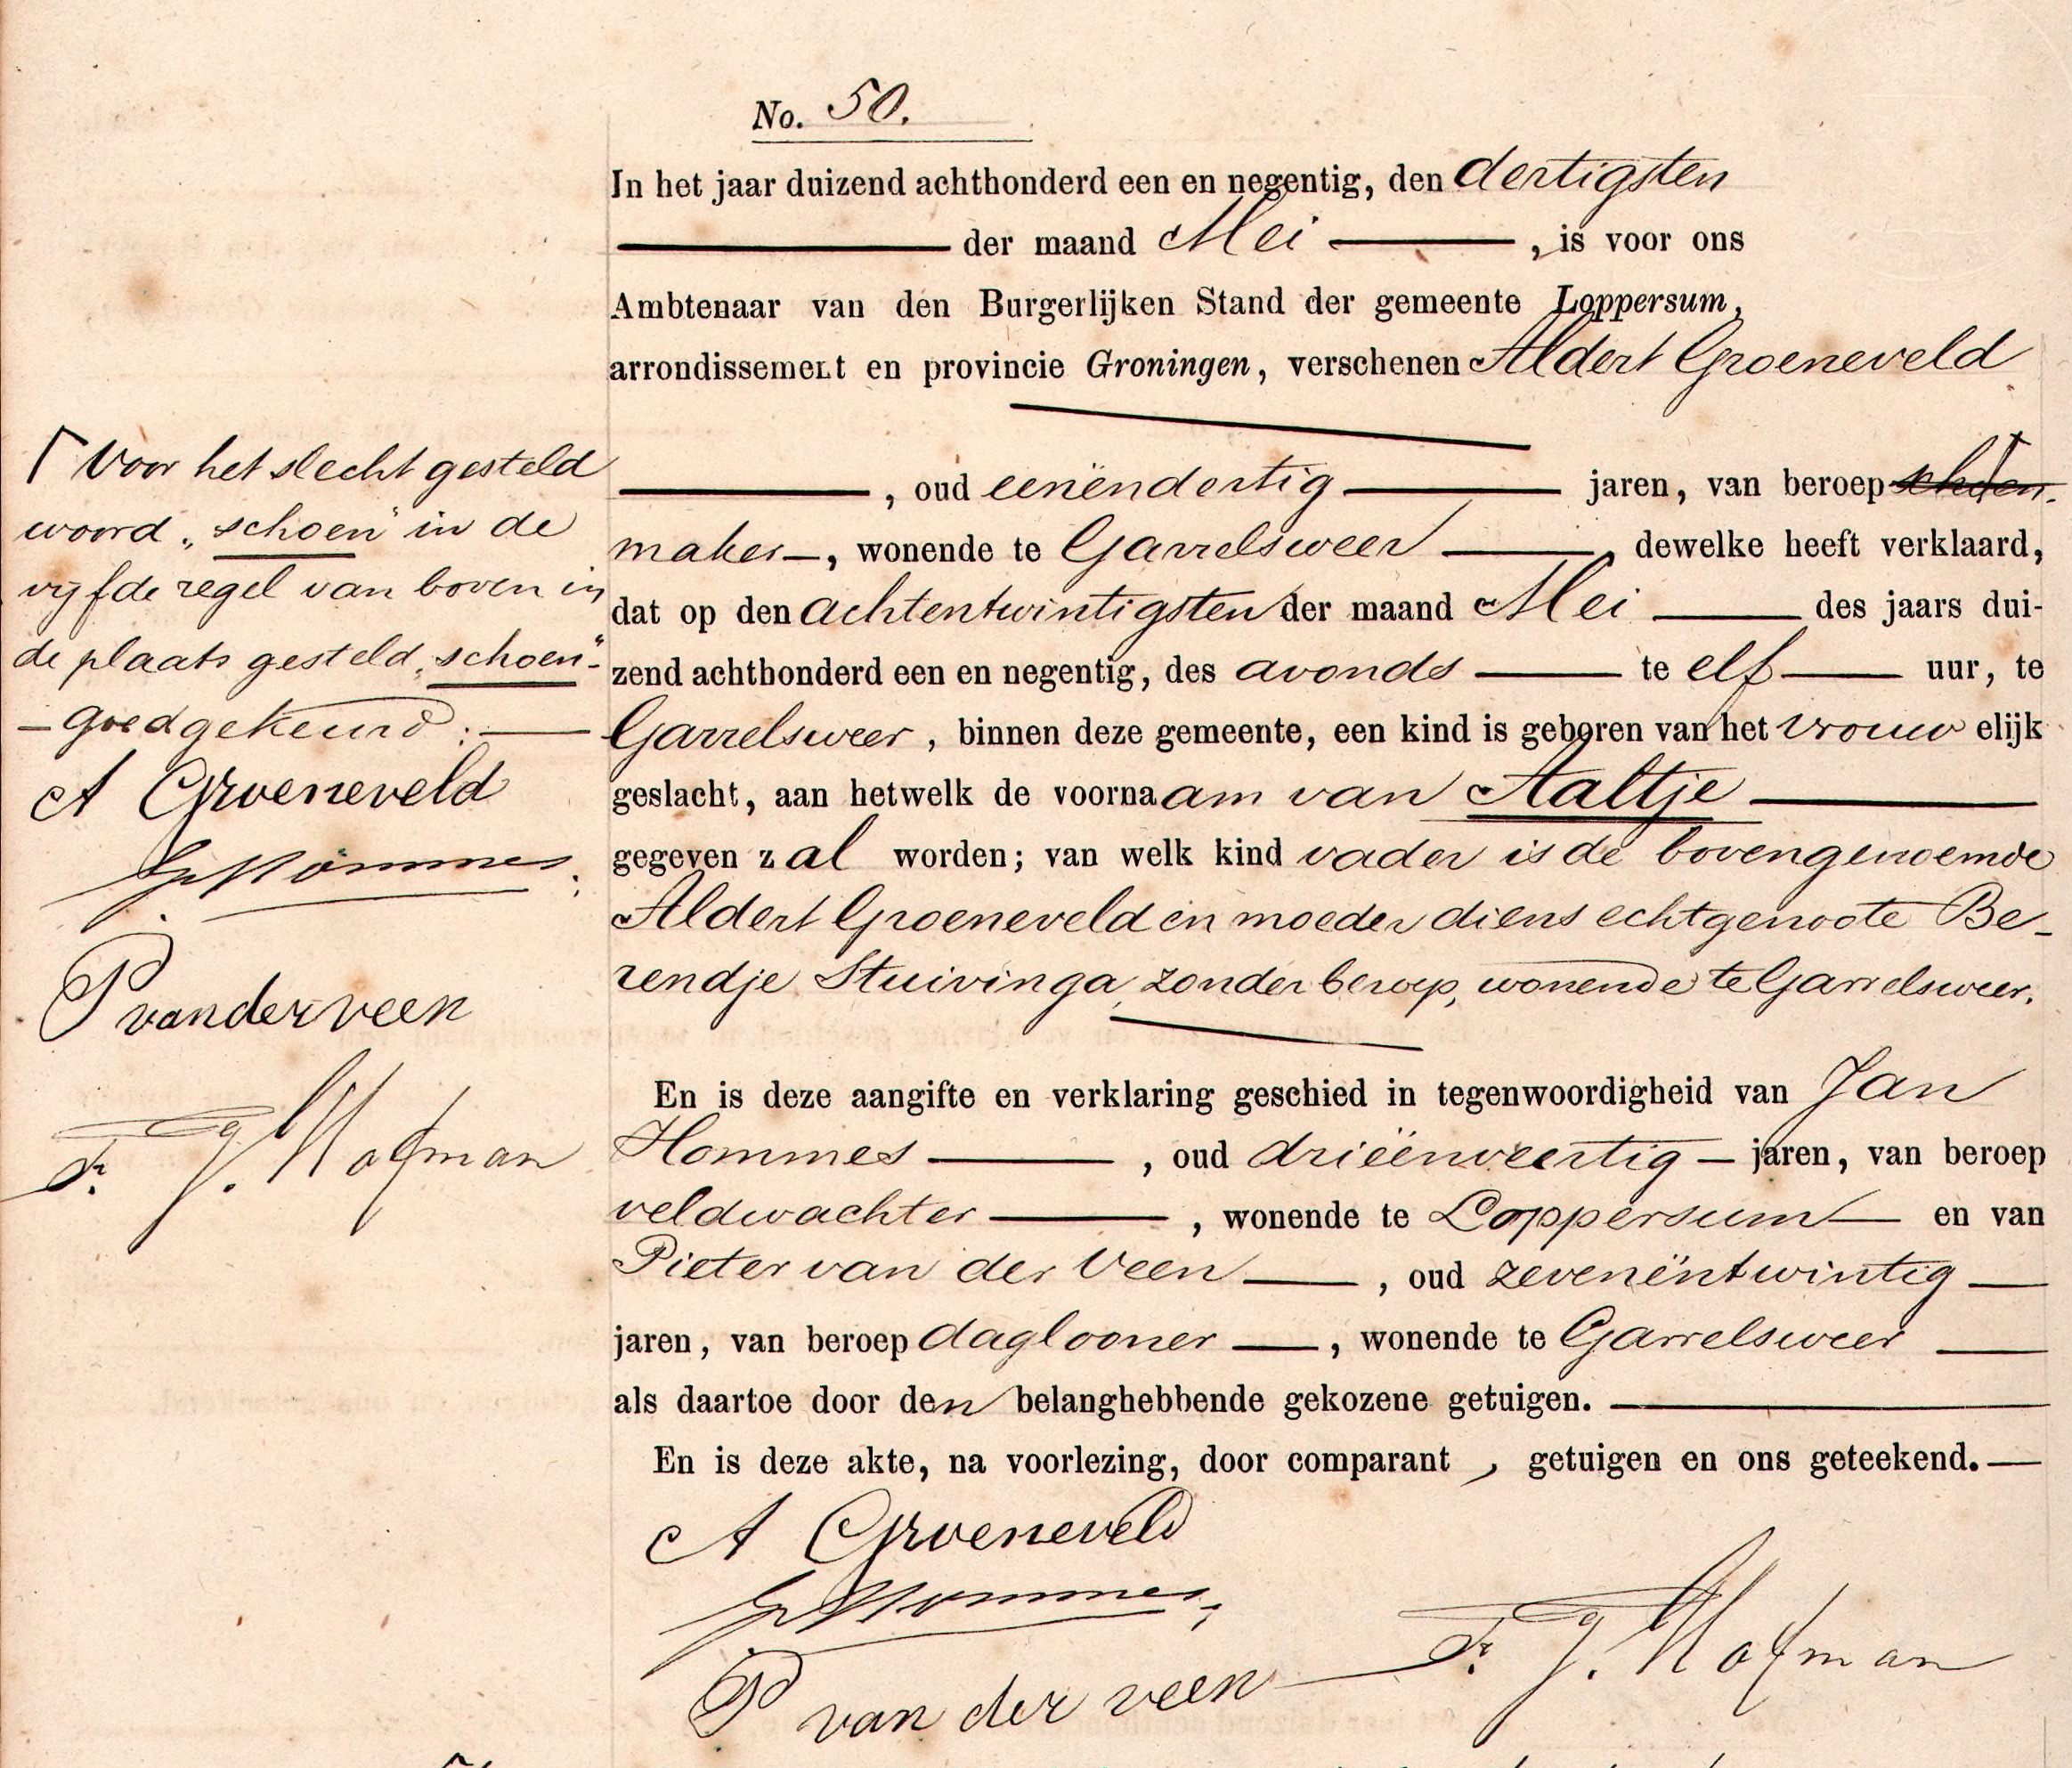 No. 50.
In het jaar duizend achthonderd een en negentig, den dertigsten
der maand Mei, is voor ons
Ambtenaar van den Burgerlijken Stand der gemeente Loppersum,
arrondissement en provincie Groningen, verschenen Aldert Groeneveld
, oud eenëndertig jaren, van beroep schoen-
maker, wonende te Garrelsweer, dewelke heeft verklaard,
dat op den achtentwintigsten der maand Mei des jaars dui-
zend achthonderd een en negentig, des avonds te elf uur, te
Garrelsweer, binnen deze gemeente, een kind is geboren van het vrouwelijk
geslacht, aan hetwelk de voornaam van Aaltje
gegeven zal worden; van welk kind vader is de bovengenoemde
Aldert Groeneveld en moeder diens echtgenoote Be-
rendje Stuivinga, zonder beroep, wonende te Garrelsweer.
En is deze aangifte en verklaring geschied in tegenwoordigheid van Jan
Hommes, oud drieënveertig jaren, van beroep
veldwachter, wonende te Loppersum en van
Pieter van der Veen, oud zevenëntwintig
jaren, van beroep daglooner, wonende te Garrelsweer
als daartoe door den belanghebbende gekozene getuigen.
En is deze akte, na voorlezing, door comparant, getuigen en ons geteekend.
A Groeneveld
Hommes
P van der veen
J. Hofman
Γ Voor het slecht gesteld
woord „schoen" in de
vijfde regel van boven in
de plaats gesteld „schoen"-
- goedgekeurd:
A Groeneveld
Hommes
P van der veen
J. Hofman